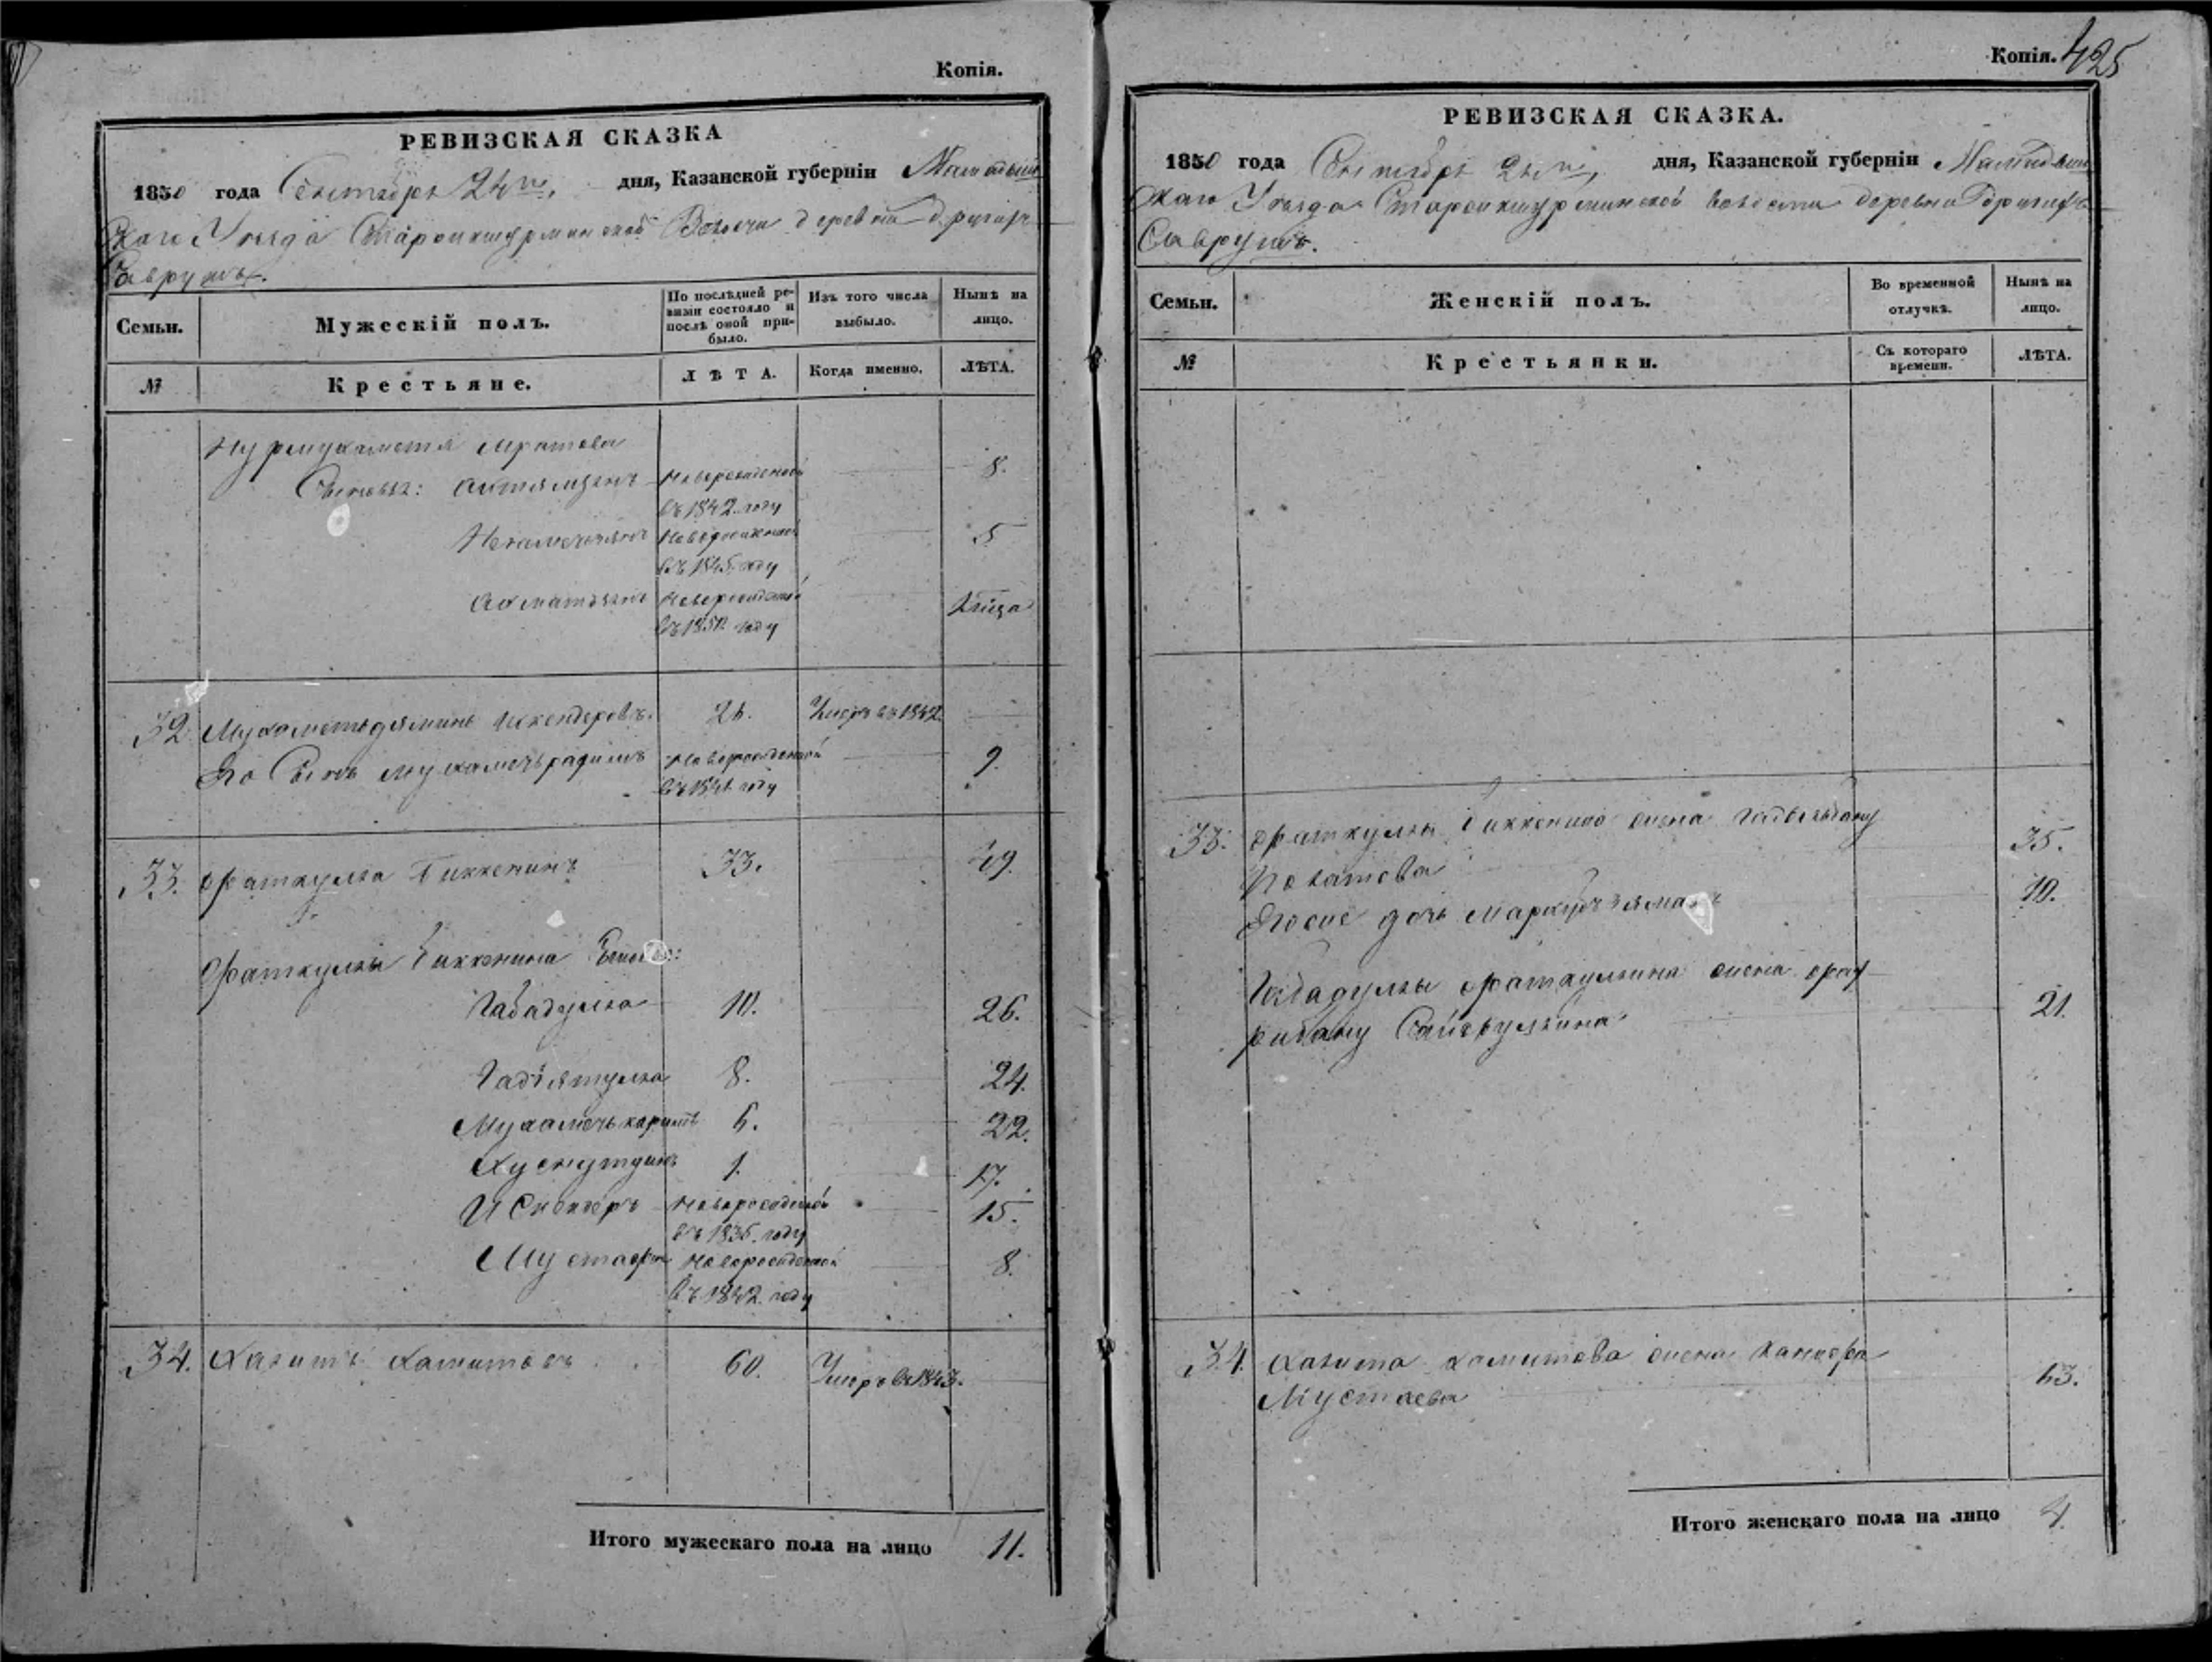 Копія.
РЕВИЗСКАЯ СКАЗКА
1850 года Сентября 24го, дня, Казанской губерніи Мамадыш
скаго Уезда Староикшурминской Волости деревни
Саврушъ.
Семьи.
Мужескій полъ.
По послѣдней ре-
визіи состояло и
послѣ оной при-
было.
Изъ того числа
выбыло.
Нынѣ на
лицо.
№
Крестьяне.
ЛѢТА.
Когда именно.
ЛѢТА.
Нурмухаметя Мратова
Сыновья: Актямзянъ Новорожденной 8.
въ 1842 году
Новорожденной 5
въ 1845 году
Ахматзянъ Новорожденной
въ 1850 году
32 Мухаметьдяминъ Искендеровъ. 24. Умеръ въ 1842
Его Сынъ Мухаметьрахимъ Новорожденной 9.
въ 1841 году
33. Фаткулла Биккенинъ 33. 49.
Фаткуллы Биккенина Сыновья:
Габадулла 10. 26.
Гадіятулла 8. 24.
Мухаметькаримъ 6. 22.
Хуснутдинъ 1. 17.
Искендеръ Новорожденной 15.
въ 1835 году
Мустафа Новорожденной 8.
въ 1842 году
34. Халитъ Хамитовъ 60. Умеръ въ 1843.
Итого мужескаго пола на лицо 11.
Копія. 425
РЕВИЗСКАЯ СКАЗКА.
1850 года Сентября 24го, дня, Казанской губерніи Мамадыш
скаго Уезда Староикшурминской волости деревни
Саврушъ.
Семьи.
Женскій полъ.
Во временной
отлучкѣ.
Нынѣ на
лицо.
№
Крестьянки.
Съ котораго
времени.
ЛѢТА.
33. Фаткуллы Биккенина жена 35.
Его же дочь 10.
Габадуллы Фаткуллина жена 21.
Сайфуллина
34. Халита Хамитова жена 63.
Мустаева
Итого женскаго пола на лицо 4.